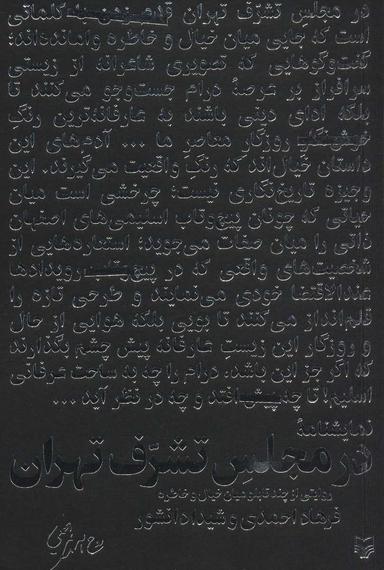 در مجلس تشرّف تهران قدم کلماتی
است که جایی میان خیال و خاطره وامانده‌اند؛
گفت‌وگوهایی که تصویری شاعرانه از زیستی
سرافراز بر عرصهٔ درام جست‌وجو می‌کنند تا
بلکه ادای دینی باشند به عارفانه‌ترین رنگِ
روزگار معاصر ما ... آدم‌های این
داستان خیال‌اند که رنگ واقعیت می‌گیرند. این
وجیزه تاریخ‌نگاری نیست؛ چرخشی است میان
حیاتی که چونان پیچ‌وتاب اسلیمی‌های اصفهان
ذاتی را میان صفات می‌جوید؛ استعاره‌هایی از
شخصیت‌های واقعی که در رویدادها
عندالاقتضا خودی می‌نمایند و طرحی تازه را
قلم‌انداز می‌کنند تا بویی بلکه هوایی از حال
و روزگار این زیستِ عارفانه پیش چشم بگذارند
که اگر جز این باشد، درام را چه به ساحت عرفانی
اسلیم! تا چه افتد و چه در نظر آید ...
نمایشنامهٔ
در مجلسِ تشرّف تهران
روایتی از چند تابلو میان خیال و خاطره
فرهاد احمدی و شیدا دانشور